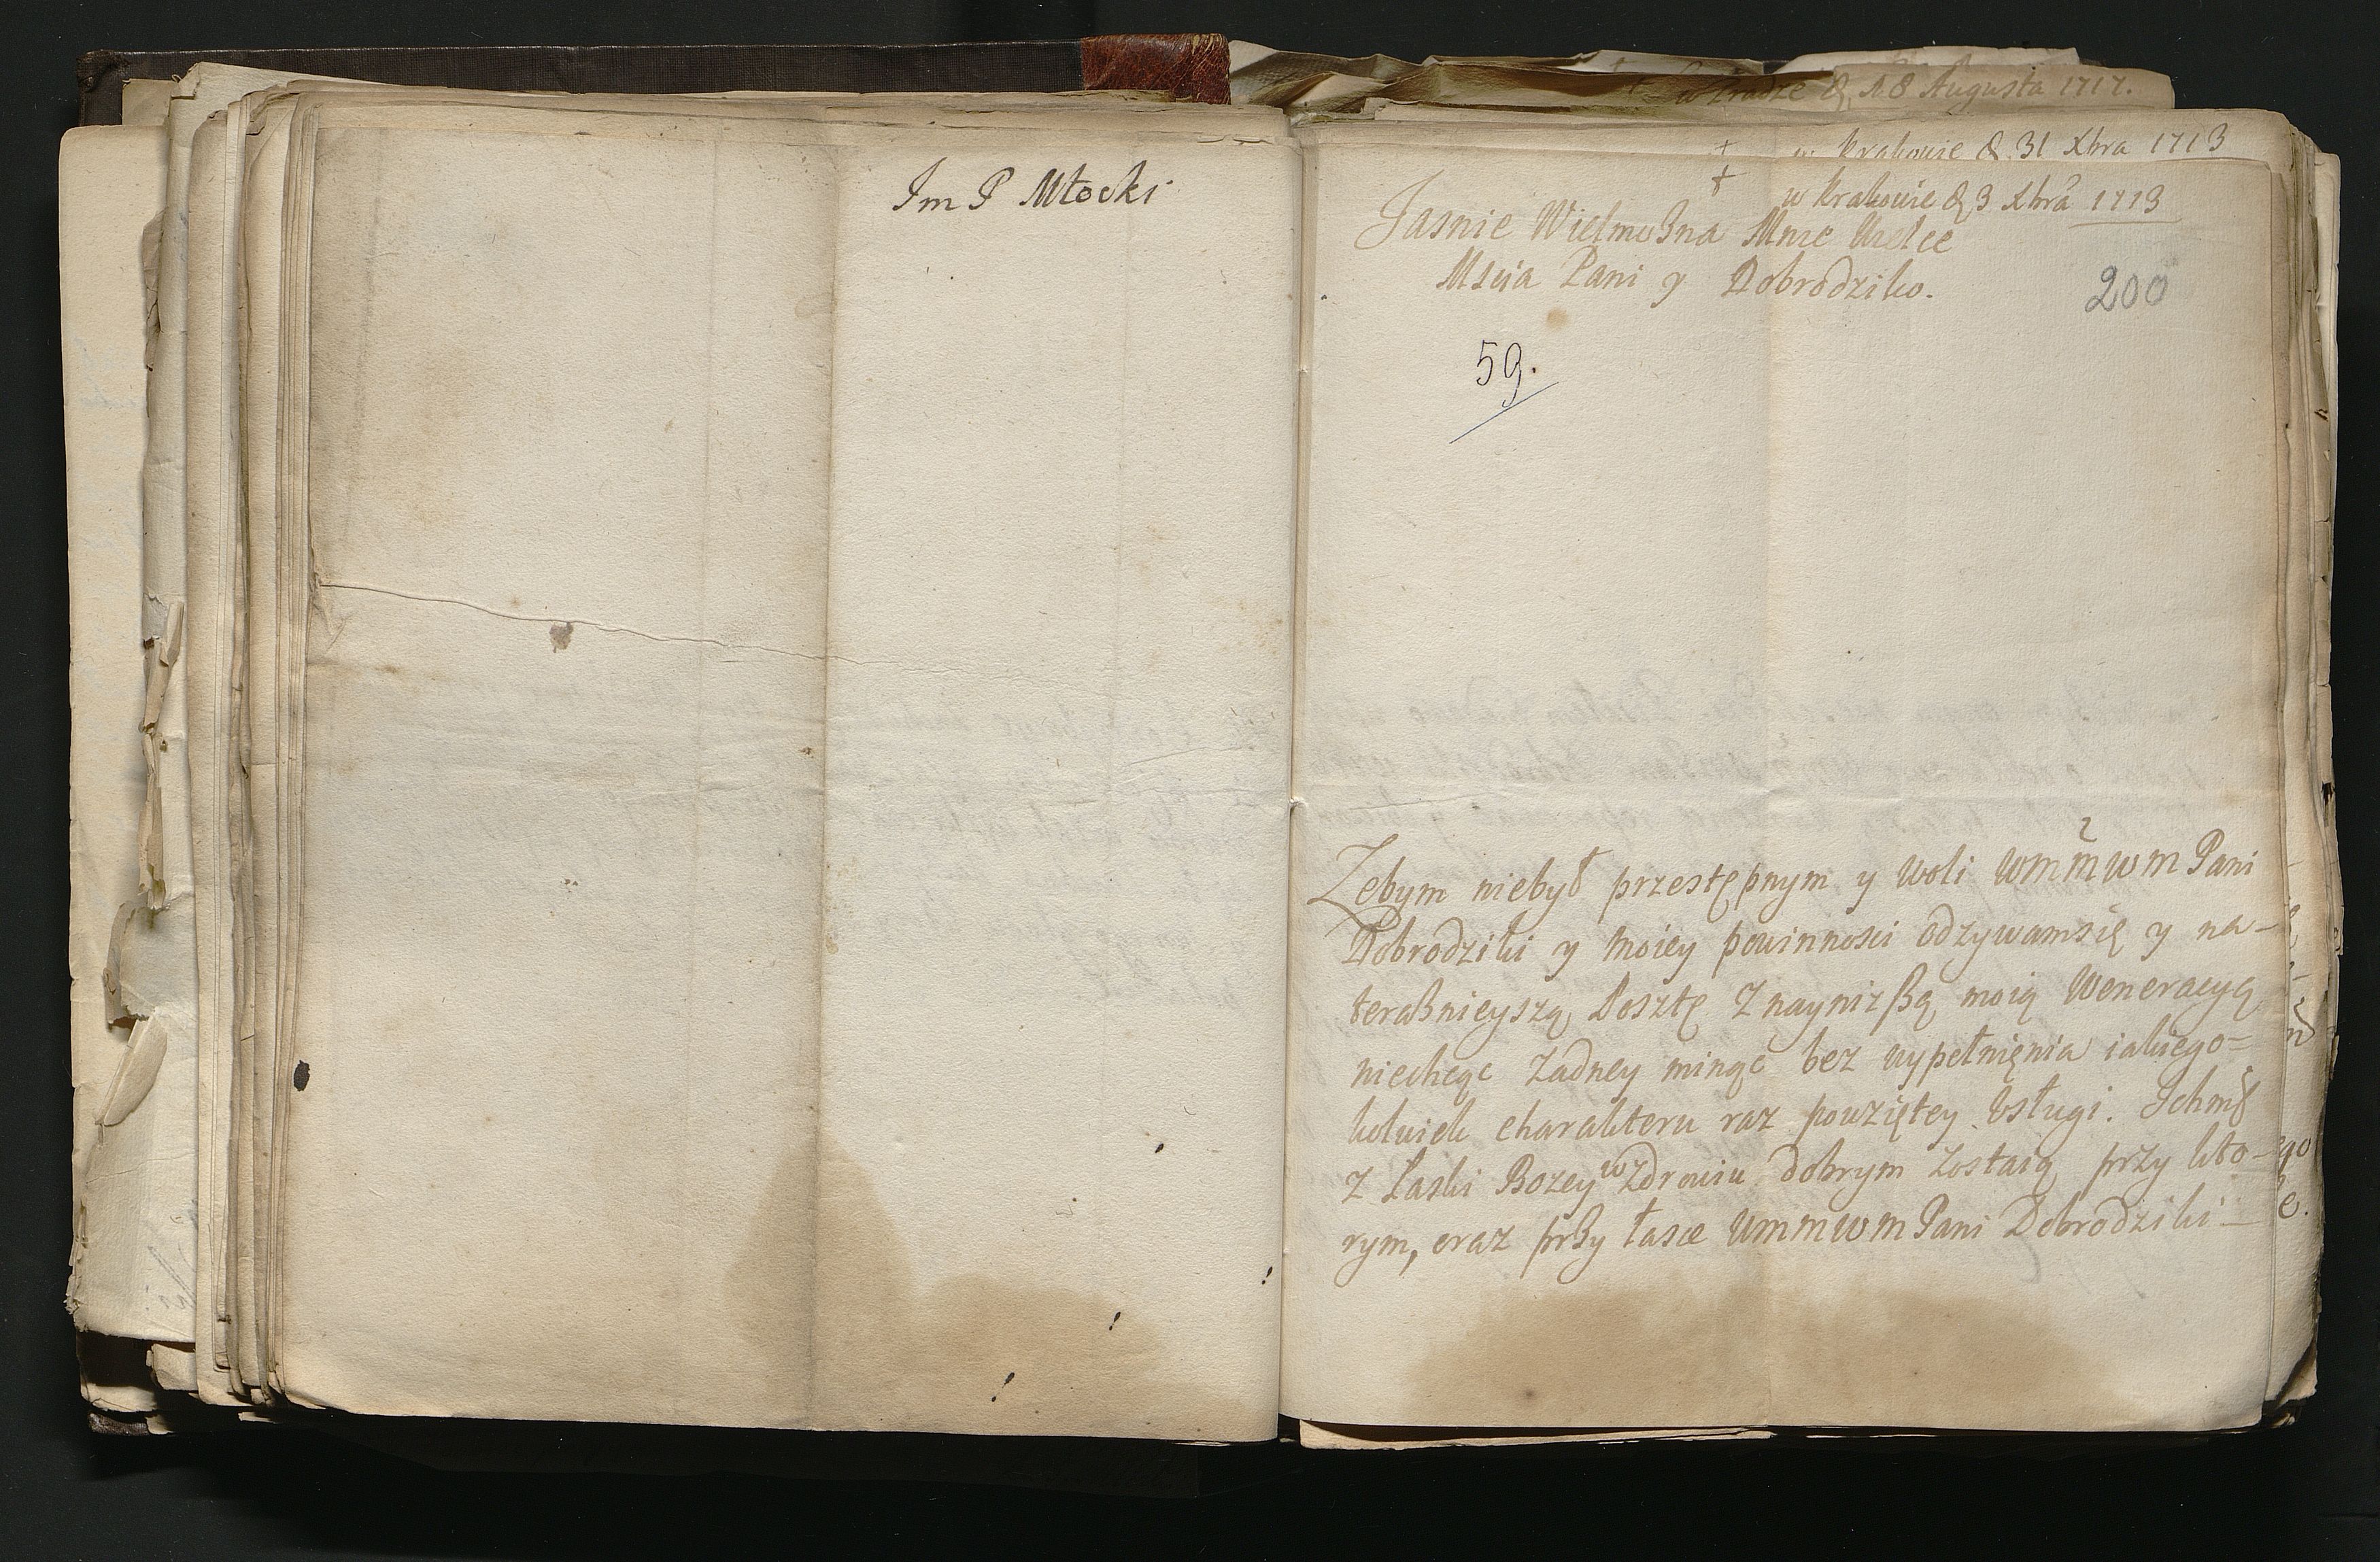 Im P Młocki
w Pradze D. 18 Augusta 1717.
w Krakowie D. 31 Xbra 1713
w Krakowie D 3 Xbra 1713
Jasnie Wielmożna Mnie Wielce
Mscia Pani y Dobrodziko.
200
59.
Zebym niebył przestępnym y woli WMMWM Pani
Dobrodziki y moiey powinnosci odzywamsię y na-
teraßnieyszą Posztę z nayniżßą moią Weneracyą
niechcąc żadney minąc bez wypełnięnia iakiego=
kolwiek charakteru raz powziętey Usługi. Ichmść
z Łaski Bozey w Zdrowiu dobrym zostaią przy kto-
rym, oraz przy łasce WMMWM Pani Dobrodziki -